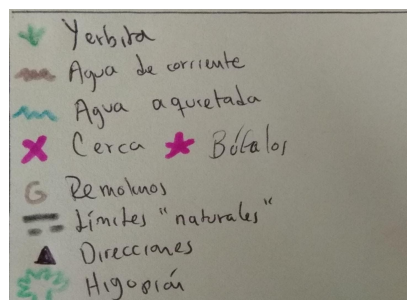 Yerbita
Agua de corriente
Agua aquietada
Cerca Búfalos
G Remolinos
Límites "naturales"
Direcciones